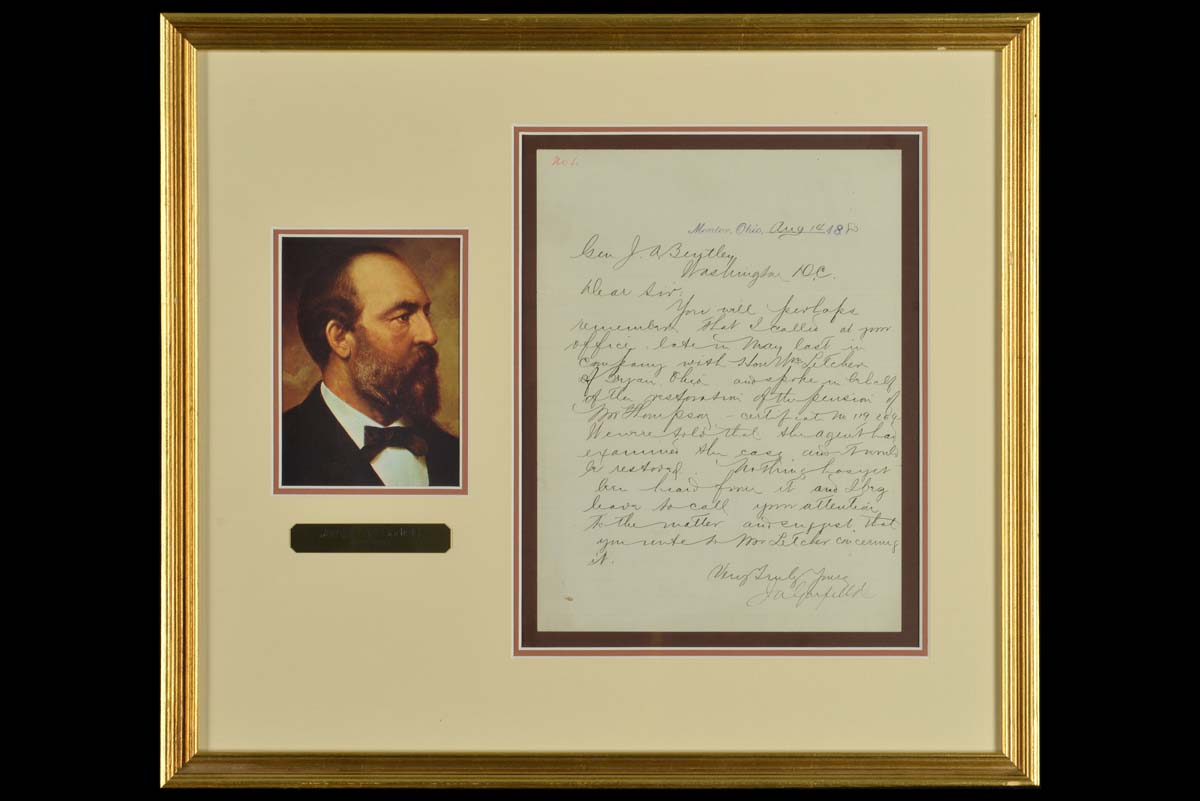 No 1.
Mentor, Ohio, Aug 14 188
Gen J. A. Bentley
Washington D.C.
Dear Sir:
You will perhaps
remember that I called at your
office late in May last in
company with Hon Letcher
of Bryan, Ohio and spoke in behalf
of the restoration of the pension of
Thompson – certificate No 119
We were told that the agent had
examined the case and it would
be restored. Nothing has yet
been heard from it and I beg
leave to call your attention
to the matter and suggest that
you write to Mr Letcher concerning
it.
Very Truly Yours
J A Garfield